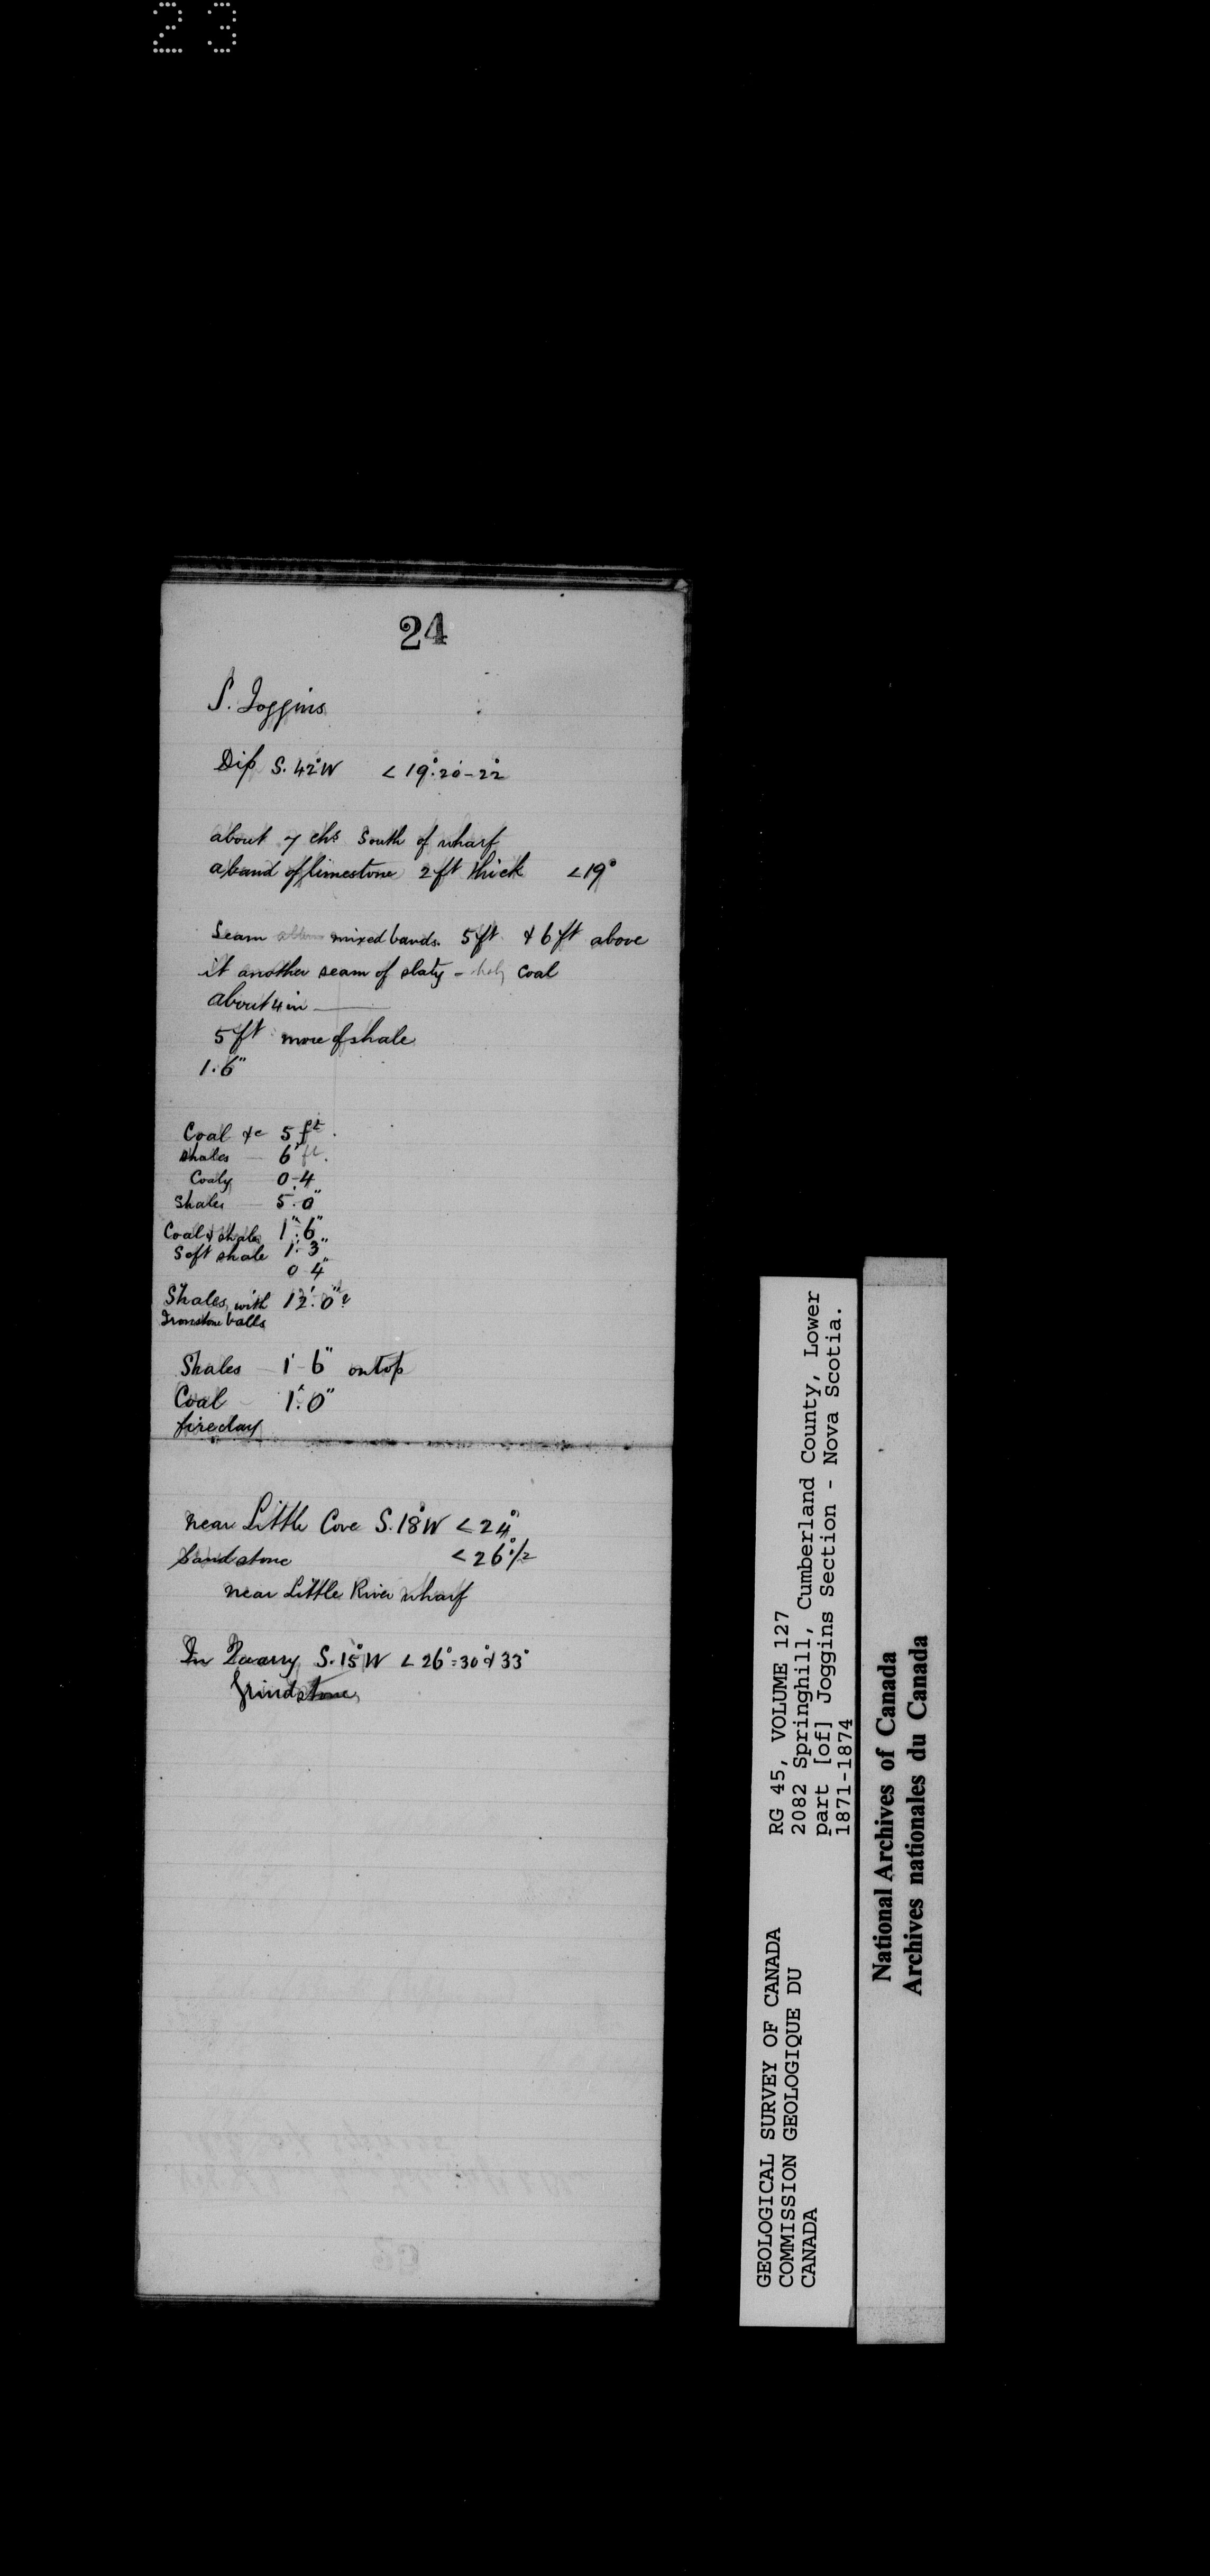 23
24
S. Joggins
Dip S. 42°W < 19°.20'-22°
about 7 chs South of wharf
a band of limestone 2 ft thick < 19°
Seam mixed bands. 5 ft & 6 ft above
it another seam of slaty - coal
about 4 in
5 ft more of shale
1.6"
Coal &c 5 ft.
Shales 6 ft.
Coaly 0-4
Shales 5'.0"
Coal & shales 1'.6"
Soft shale 1'.3"
0-4"
Shales with 12'.0"?
Ironstone balls
Shales 1'-6" on top
Coal 1'.0"
fireclay
near Little Cove S. 18°W < 24°
Sandstone < 26°1/2
near Little River wharf
In Quarry S. 15°W < 26°=30° & 33°
Grindstone
GEOLOGICAL SURVEY OF CANADA
COMMISSION GEOLOGIQUE DU
CANADA
RG 45, VOLUME 127
2082 Springhill, Cumberland County, Lower
part [of] Joggins Section - Nova Scotia.
1871-1874
National Archives of Canada
Archives nationales du Canada